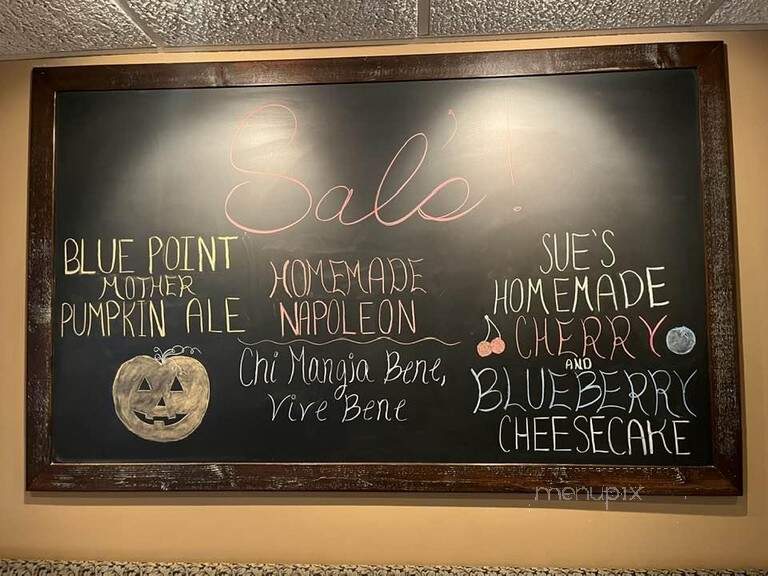 Sal's!
BLUE POINT
MOTHER
PUMPKIN ALE
HOMEMADE
NAPOLEON
Chi Mangia Bene,
Vive Bene
SUE'S
HOMEMADE
CHERRY
AND
BLUEBERRY
CHEESECAKE
menupix